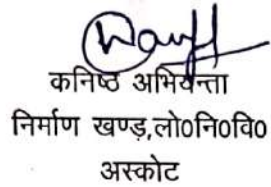 कनिष्ठ अभियन्ता
निर्माण खण्ड़,लो0नि0वि0
अस्कोट